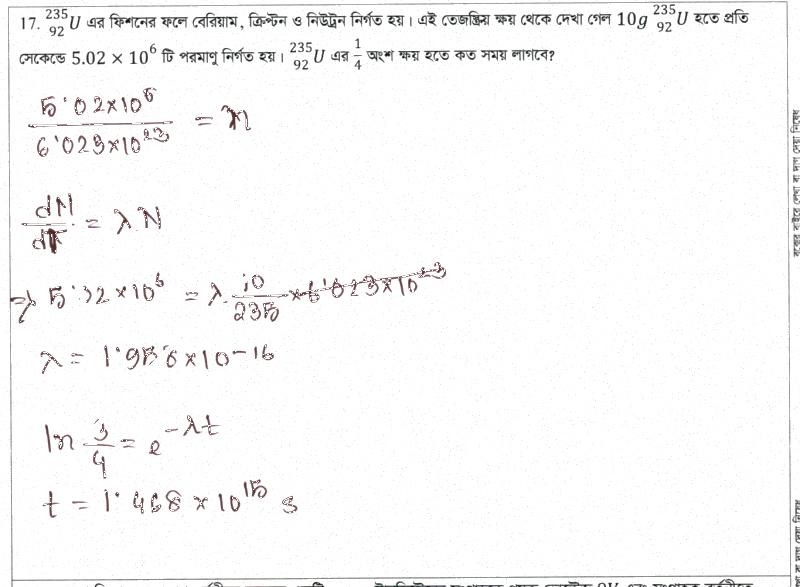 17. ²³⁵₉₂U এর ফিশনের ফলে বেরিয়াম, ক্রিপ্টন ও নিউট্রন নির্গত হয়। এই তেজস্ক্রিয় ক্ষয় থেকে দেখা গেল 10g ²³⁵₉₂U হতে প্রতি
সেকেন্ডে 5.02 × 10⁶ টি পরমাণু নির্গত হয়। ²³⁵₉₂U এর 1/4 অংশ ক্ষয় হতে কত সময় লাগবে?
5.02×10⁶ / 6.023×10²³ = n
dN/dt = λN
⇒ 5.02×10⁶ = λ. 10/235 × 6.023×10²³
λ = 1.956×10⁻¹⁶
ln 3/4 = e^-λt
t = 1.468 × 10¹⁵ s